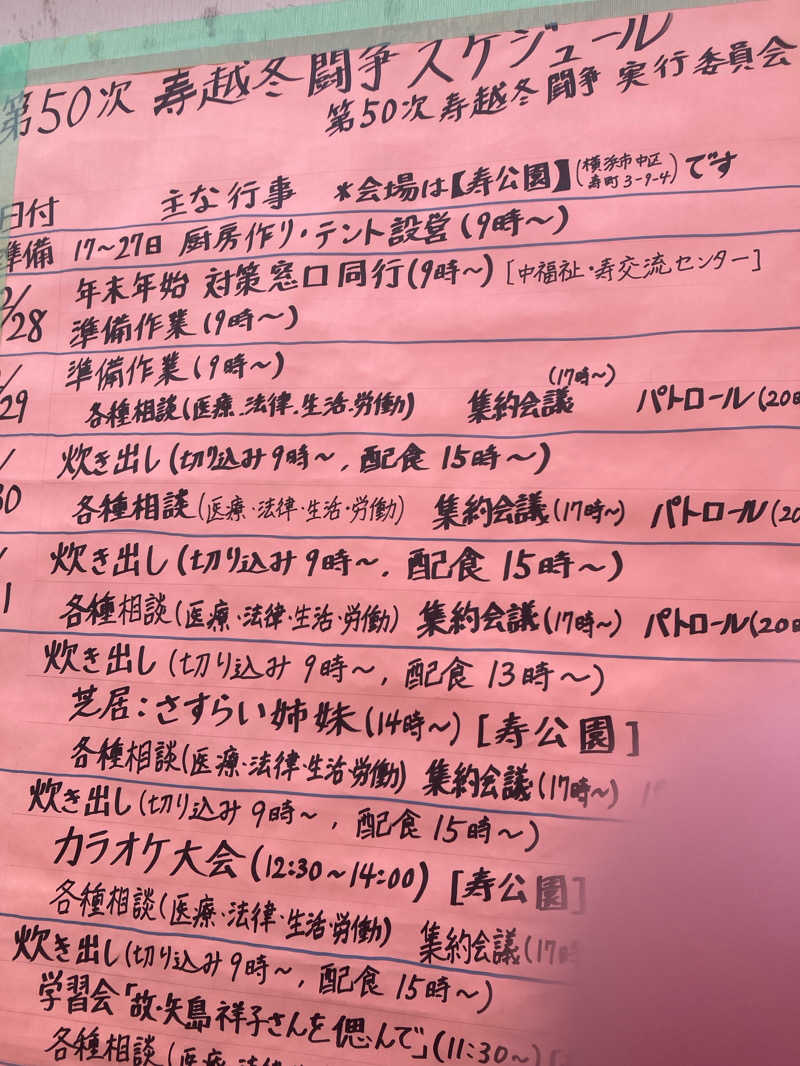 第50次 寿越冬闘争スケジュール
第50次 寿越冬闘争 実行委員会
日付 主な行事 *会場は【寿公園】(横浜市中区寿町3-9-4)です
準備 17~27日 厨房作り・テント設営(9時~)
28 年末年始 対策窓口同行(9時~)[中福祉・寿交流センター]
準備作業(9時~)
29 準備作業(9時~)
各種相談(医療・法律・生活・労働) 集約会議(17時~) パトロール(20時
30 炊き出し(切り込み9時~, 配食15時~)
各種相談(医療・法律・生活・労働) 集約会議(17時~) パトロール(20
1 炊き出し(切り込み9時~, 配食15時~)
各種相談(医療・法律・生活・労働) 集約会議(17時~) パトロール(20時
炊き出し(切り込み9時~, 配食13時~)
芝居:さすらい姉妹(14時~)[寿公園]
各種相談(医療・法律・生活・労働) 集約会議(17時~)
炊き出し(切り込み9時~, 配食15時~)
カラオケ大会(12:30~14:00)[寿公園]
各種相談(医療・法律・生活・労働) 集約会議(17時
炊き出し(切り込み9時~, 配食15時~)
学習会「故・矢島祥子さんを偲んで」(11:30~)[
各種相談(医療・法律